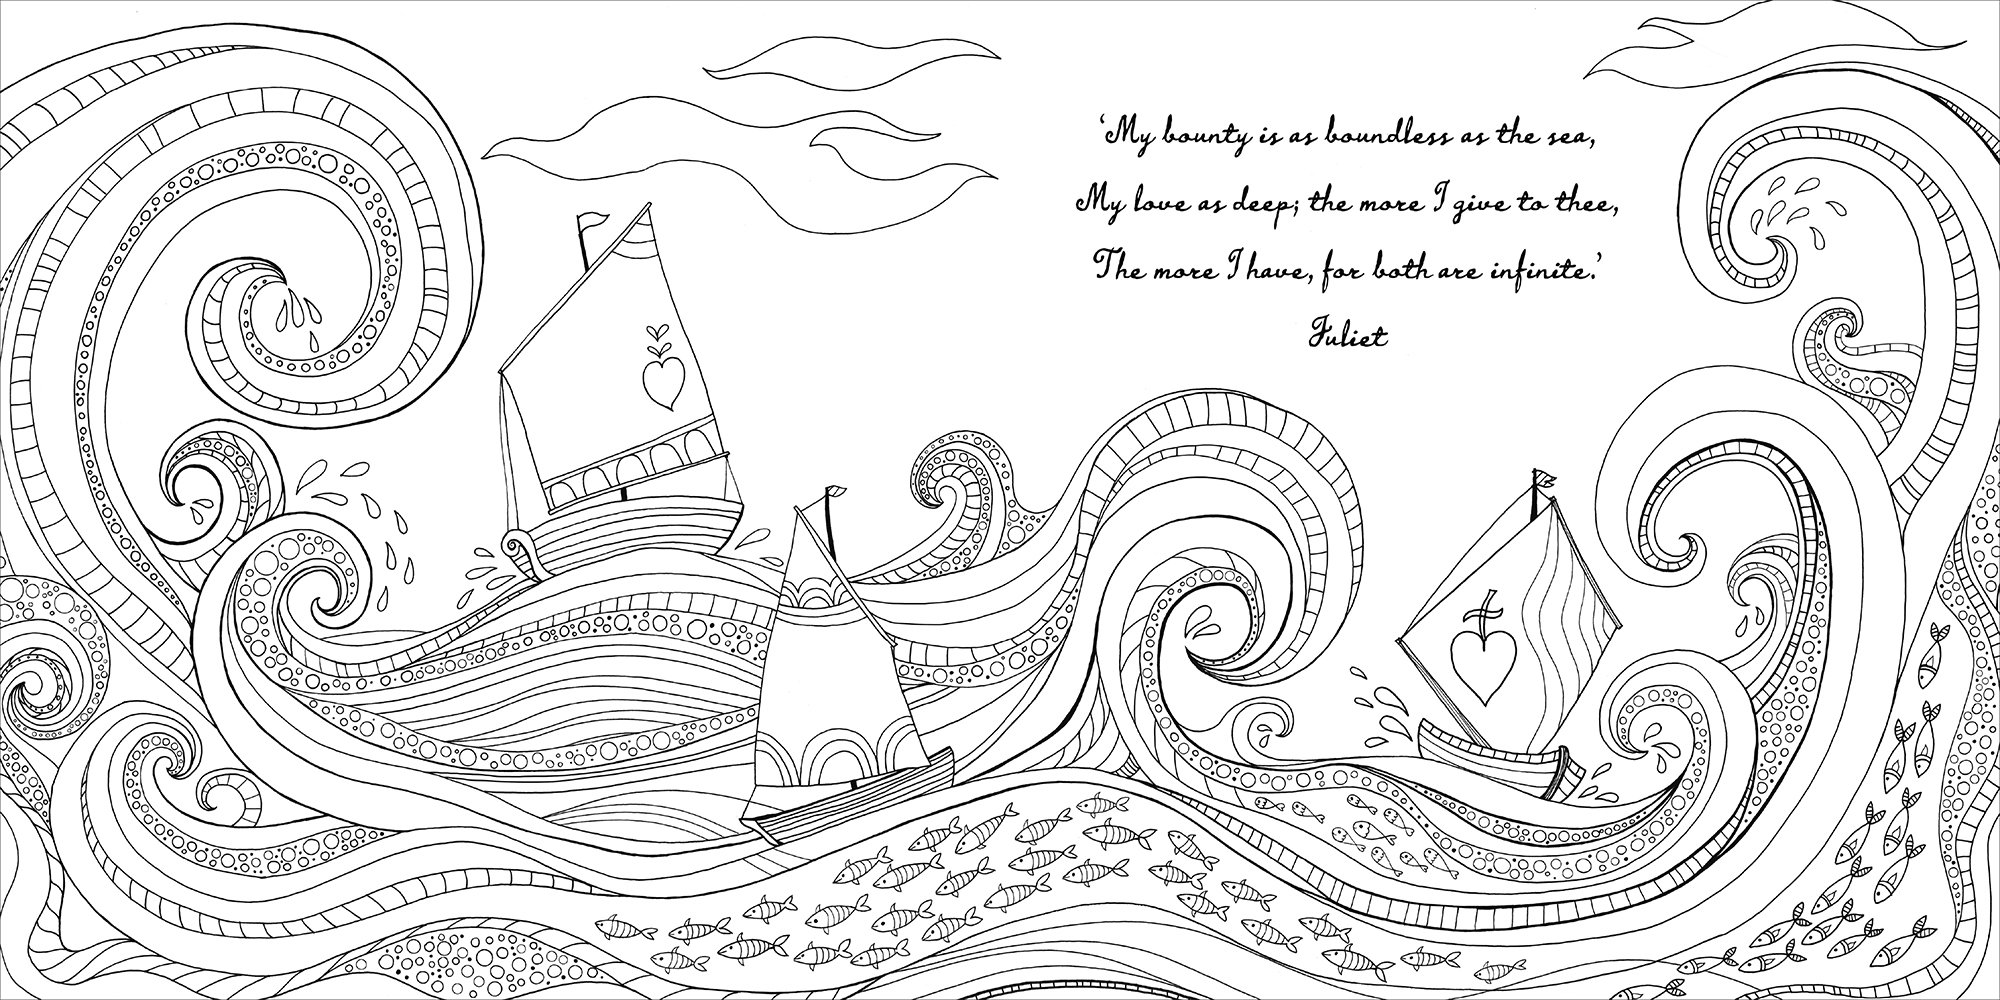 ‘My bounty is as boundless as the sea,
My love as deep; the more I give to thee,
The more I have, for both are infinite.’
Juliet